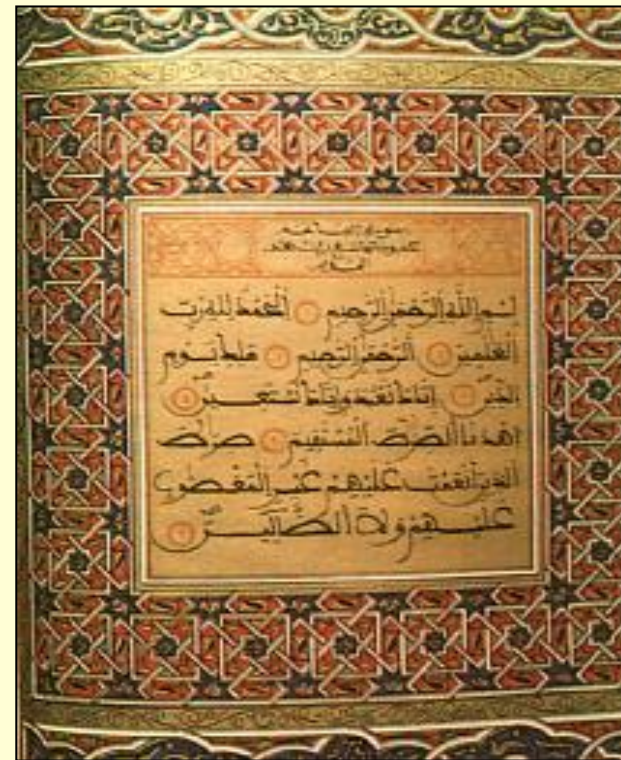 بسم الله الرحمن الرحيم ١ الحمد لله رب
العلمين ٢ الرحمن الرحيم ٣ ملك يوم
الدين ٤ إياك نعبد وإياك نستعين ٥
اهدنا الصرط المستقيم ٦ صرط
الذين أنعمت عليهم غير المغضوب
عليهم ولا الضالين ٧